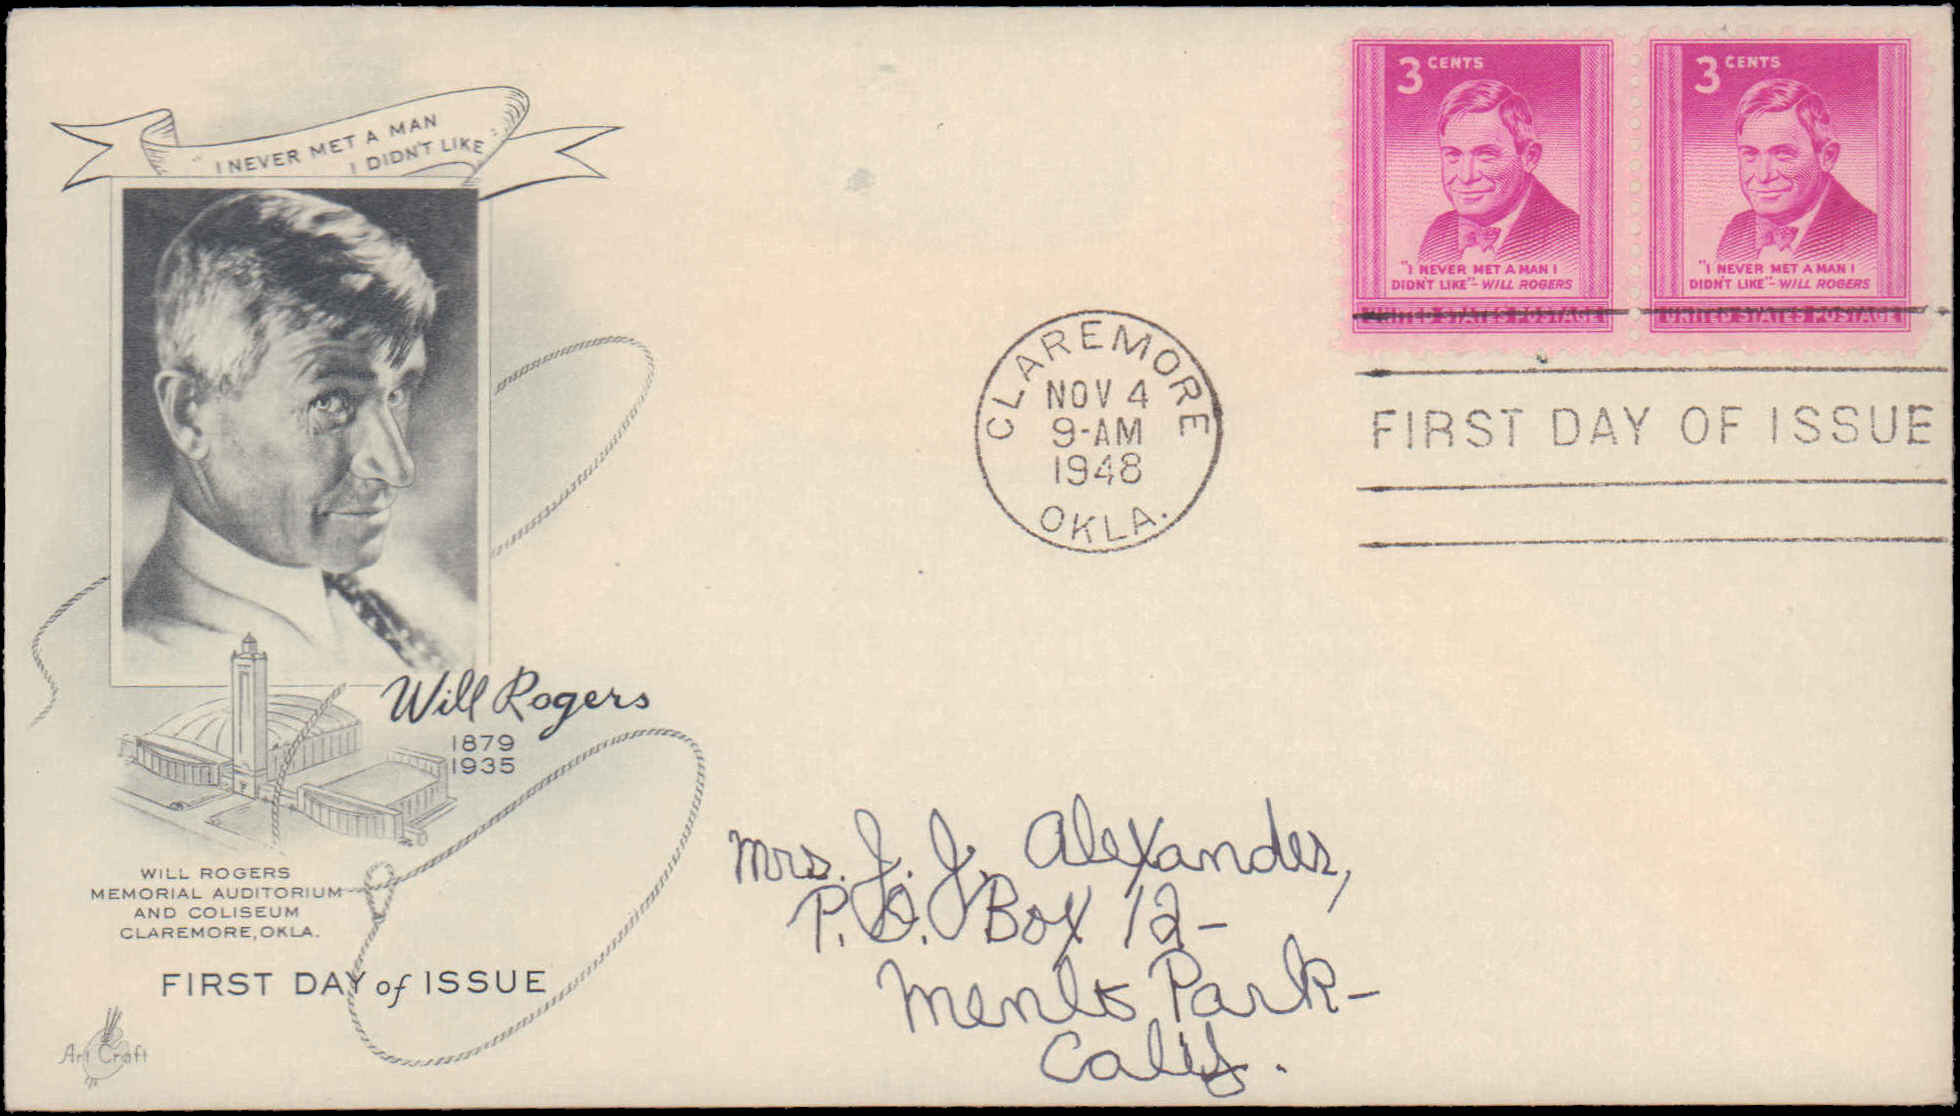 "I NEVER MET A MAN
I DIDN'T LIKE"
Will Rogers
1879
1935
WILL ROGERS
MEMORIAL AUDITORIUM
AND COLISEUM
CLAREMORE, OKLA.
FIRST DAY of ISSUE
Art Craft
CLAREMORE
NOV 4
9-AM
1948
OKLA.
3 CENTS
"I NEVER MET A MAN I
DIDN'T LIKE"- WILL ROGERS
UNITED STATES POSTAGE
3 CENTS
"I NEVER MET A MAN I
DIDN'T LIKE"- WILL ROGERS
UNITED STATES POSTAGE
FIRST DAY OF ISSUE
Mrs. J. J. Alexander,
P.O. Box 12-
Menlo Park-
Calif.